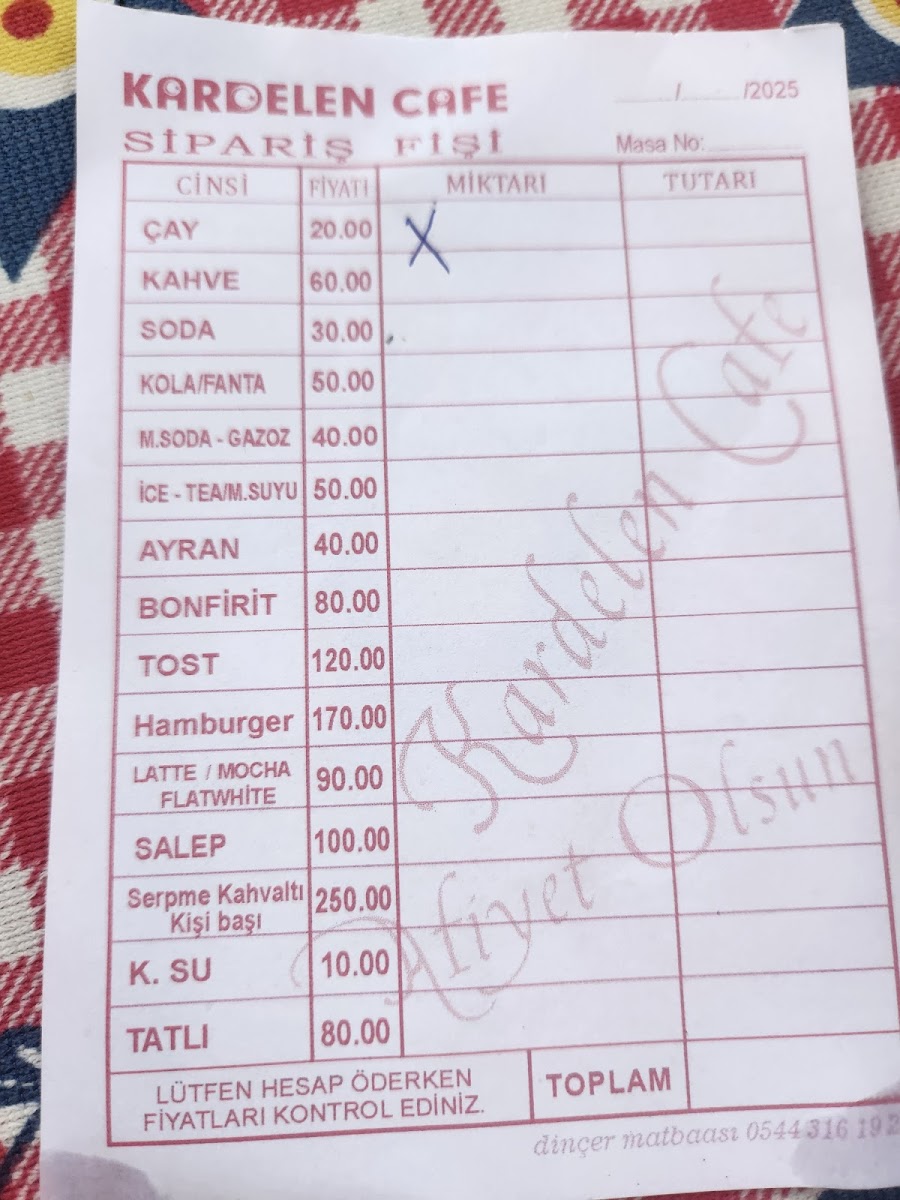 KARDELEN CAFE
....../......./2025
SİPARİŞ FİŞİ
Masa No:............
CİNSİ FİYATI MİKTARI TUTARI
ÇAY 20.00 X
KAHVE 60.00
SODA 30.00
KOLA/FANTA 50.00
M.SODA - GAZOZ 40.00
İCE - TEA/M.SUYU 50.00
AYRAN 40.00
BONFİRİT 80.00
TOST 120.00
Hamburger 170.00
LATTE / MOCHA
FLATWHİTE 90.00
SALEP 100.00
Serpme Kahvaltı
Kişi başı 250.00
K. SU 10.00
TATLI 80.00
Kardelen Cafe
Afiyet Olsun
LÜTFEN HESAP ÖDERKEN
FİYATLARI KONTROL EDİNİZ.
TOPLAM
dinçer matbaası 0544 316 19